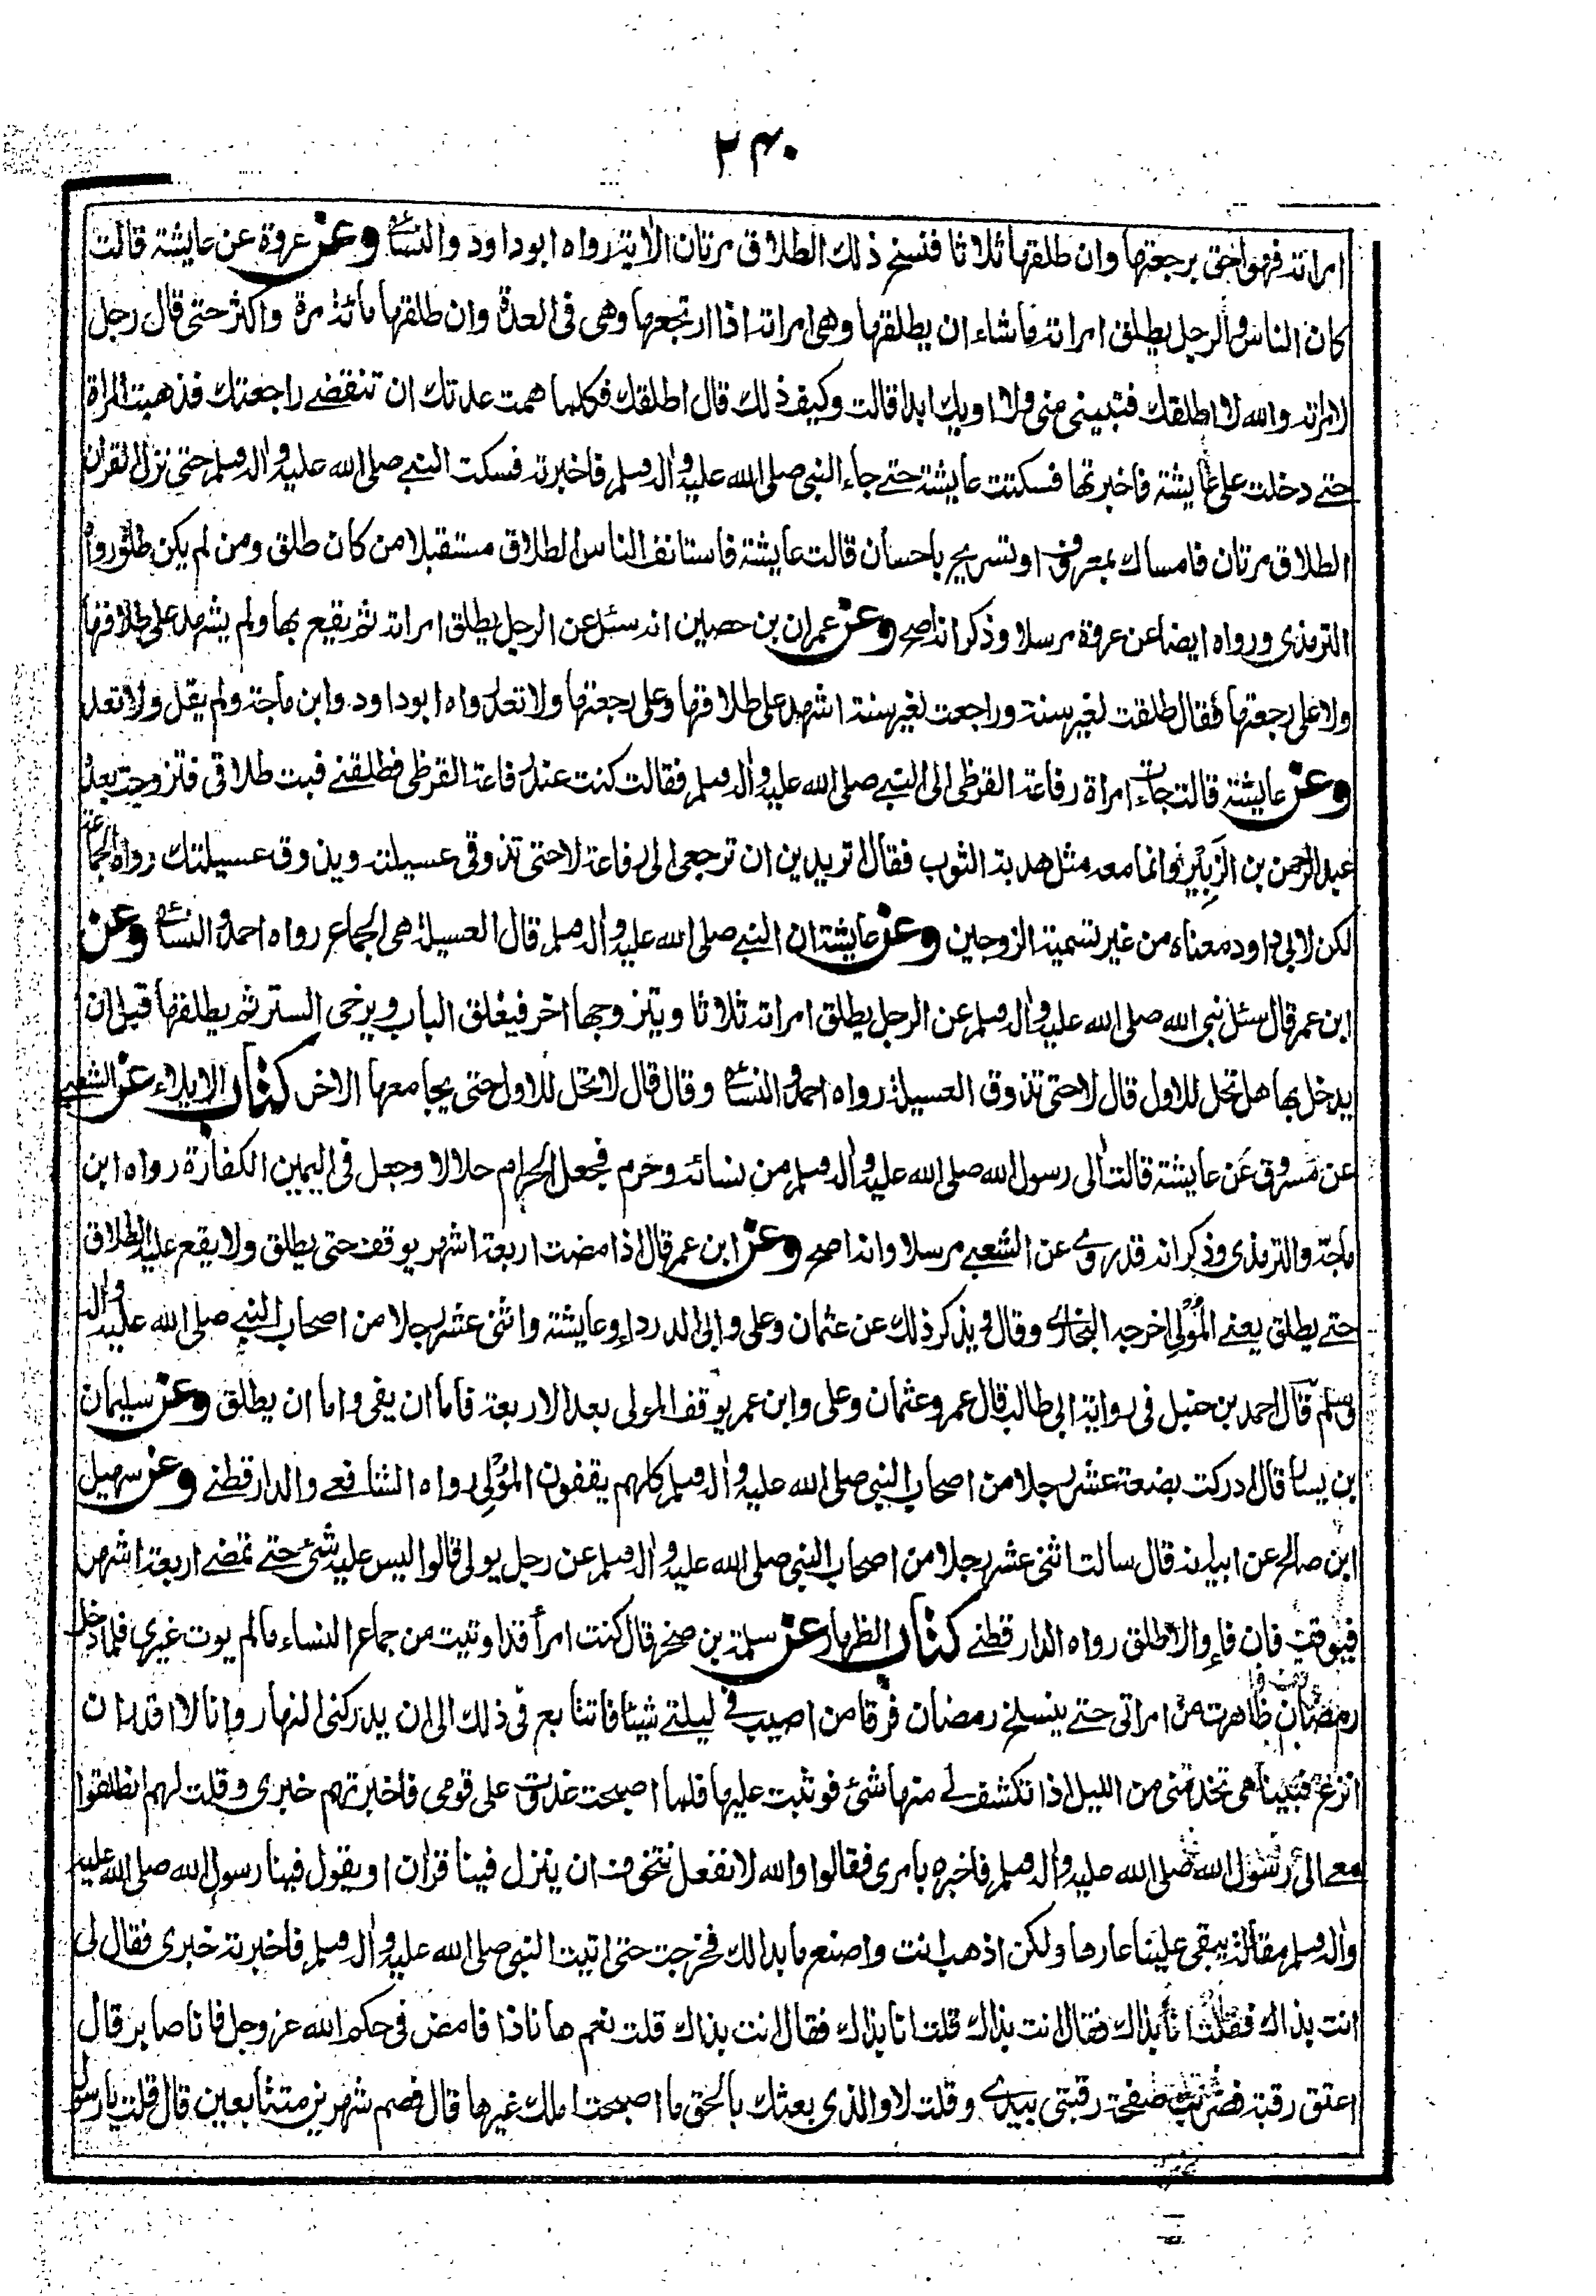 ٢٣٠
امراته فهو احق برجعتها وان طلقها ثلاثا فنسخ ذلك الطلاق مرتان الاٰية رواه ابوداود والنسائے وعن عروة عن عايشة قالت
كان الناس والرجل يطلق امراته ماشاء ان يطلقها وهى امراته اذا ارتجعها وهى فى العدة وان طلقها مائة مرة واكثر حتى قال رجل
لامراته والله لا اطلقك فتبينى منى ولا اويك ابدا قالت وكيف ذلك قال اطلقك فكلما همت عدتك ان تنقضے راجعتك فذهبت المراة
حتے دخلت على عايشة فاخبرتها فسكتت عايشة حتے جاء النبى صلى الله عليه واٰله وسلم فاخبرته فسكت النبے صلى الله عليه واٰله وسلم حتى نزل القران
الطلاق مرتان فامساك بمعروف او تسريح باحسان قالت عايشة فاستانف الناس الطلاق مستقبلا من كان طلق ومن لم يكن طلق رواه
الترمذى ورواه ايضا عن عروة مرسلا وذكر انه اصح وعن عمران بن حصين انه سئل عن الرجل يطلق امراته ثم يقع بها ولم يشهد على طلاقها
ولا على رجعتها فقال طلقت لغير سنة وراجعت لغير سنة اشهد على طلاقها وعلى رجعتها ولا تعد رواه ابوداود وابن ماجة ولم يقل ولا تعد
وعن عايشة قالت جاءت امراة رفاعة القرظى الى النبے صلى الله عليه واٰله وسلم فقالت كنت عند رفاعة القرظى فطلقنے فبت طلاقى فتزوجت بعده
عبد الرحمن بن الزَبِيْر وانما معه مثل هدبة الثوب فقال اتريدين ان ترجعى الى رفاعة لا حتى تذوقى عسيلته ويذوق عسيلتك رواه الجماعة
لكن لابى داود معناه من غير تسمية الزوجين وعن عايشة ان النبے صلى الله عليه واٰله وسلم قال العسيلة هى الجماع رواه احمد والنسائے وعن
ابن عمر قال سئل نبى الله صلى الله عليه واٰله وسلم عن الرجل يطلق امراته ثلاثا ويتزوجها اخر فيغلق الباب ويرخى الستر ثم يطلقها قبل ان
يدخل بها هل تحل للاول قال لا حتى تذوق العسيلة رواه احمد والنسائے وقال قال لا تحل للاول حتى يجامعها الاخر كتاب الايلاء عن الشعبے
عن مسروق عن عايشة قالت اٰلى رسول الله صلى الله عليه واٰله وسلم من نسائه وحرم فجعل الحرام حلالا وجعل فى اليمين الكفارة رواه ابن
ماجة والترمذى وذكر انه قد روے عن الشعبے مرسلا وانه اصح وعن ابن عمر قال اذا مضت اربعة اشهر يوقف حتى يطلق ولا يقع عليه الطلاق
حتے يطلق يعنے المُوْلِى اخرجه البخارے وقال ويذكر ذلك عن عثمان وعلى وابى الدرداء وعايشة واثنى عشر رجلا من اصحاب النبے صلى الله عليه واٰله
وسلم قال احمد بن حنبل فى رواية ابى طالب قال عمر وعثمان وعلى وابن عمر يوقف المولى بعد الاربعة فاما ان يفى واما ان يطلق وعن سليمان
بن يسار قال ادركت بضعة عشر رجلا من اصحاب النبى صلى الله عليه واٰله وسلم كلهم يقفون المُوْلِى رواه الشافعے والدارقطنے وعن سهيل
ابن صالح عن ابيه انه قال سالت اثنى عشر رجلا من اصحاب النبى صلى الله عليه واٰله وسلم عن رجل يولى قالوا ليس عليه شئ حتے تمضے اربعة اشهر
فيوقف فان فاء والا طلق رواه الدارقطنے كتاب الظهار عن سلمة بن صخر قال كنت امرأ قد اوتيت من جماع النساء مالم يوت غيرى فلما دخل
رمضان ظاهرت من امراتى حتے ينسلخ رمضان فَرَقا من اصيب فى ليلتے شيئا فاتتابع فى ذلك الى ان يدركنى النهار وانا لا اقدر ان
انزع فبينا هى تخدمنى من الليل اذ تكشف لے منها شئ فوثبت عليها فلما اصبحت غدوت على قومى فاخبرتهم خبرى وقلت لهم انطلقوا
معے الى رسول الله صلى الله عليه واٰله وسلم فاخبره بامرى فقالوا والله لا نفعل نتخوف ان ينزل فينا قراٰن او يقول فينا رسول الله صلى الله عليه
واٰله وسلم مقالة يبقى علينا عارها ولكن اذهب انت واصنع مابدالك فخرجت حتى اتيت النبى صلى الله عليه واٰله وسلم فاخبرته خبرى فقال لى
انت بذاك فقلت انا بذاك فقال انت بذاك قلت انا بذاك فقال انت بذاك قلت نعم ها انا ذا فامض فى حكم الله عز وجل فانا صابر قال
اعتق رقبة فضربت صفحة رقبتى بيدے وقلت لا والذى بعثك بالحق ما اصبحت املك غيرها قال فصم شهرين متتابعين قال قلت يا رسول